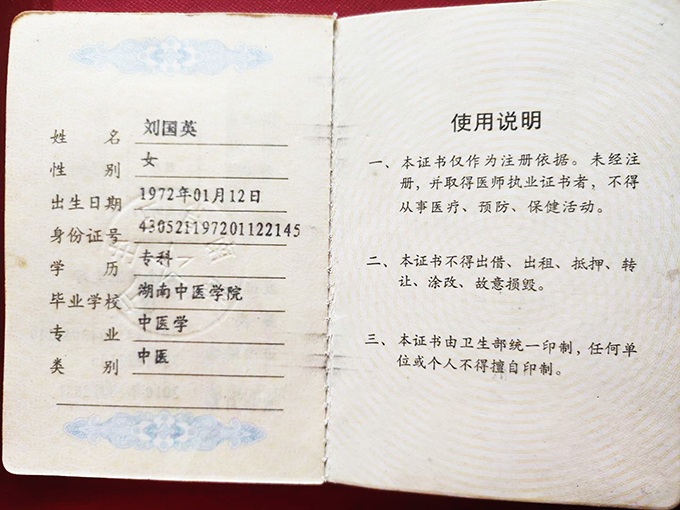 姓名 刘国英
性别 女
出生日期 1972年01月12日
身份证号 430521197201122145
学历 专科
毕业学校 湖南中医学院
专业 中医学
类别 中医
使用说明
一、本证书仅作为注册依据。未经注
册,并取得医师执业证书者,不得
从事医疗、预防、保健活动。
二、本证书不得出借、出租、抵押、转
让、涂改、故意损毁。
三、本证书由卫生部统一印制,任何单
位或个人不得擅自印制。